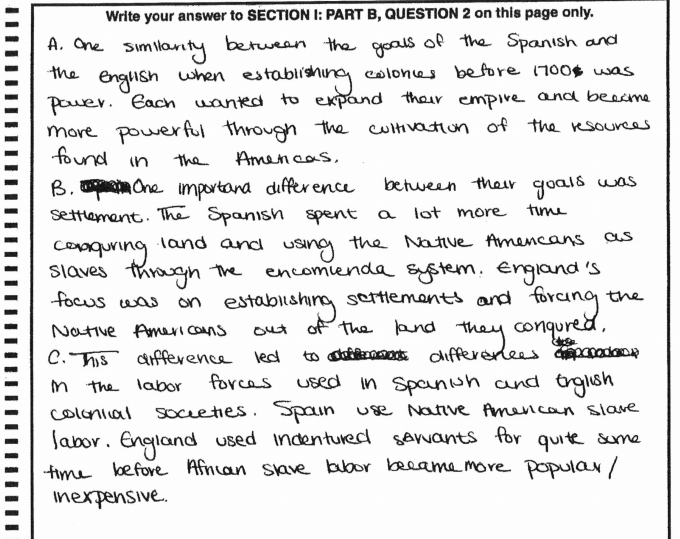 Write your answer to SECTION I: PART B, QUESTION 2 on this page only.
A. One similarity between the goals of the Spanish and
the English when establishing colonies before 1700 was
power. Each wanted to expand their empire and become
more powerful through the cultivation of the resources
found in the Americas.
B. One importand difference between their goals was
settlement. The Spanish spent a lot more time
conquring land and using the Native Americans as
slaves through the encomienda system. England's
focus was on establishing settlements and forcing the
Native Americans out of the land they conqured.
C. This difference led to differences
in the labor forces used in Spanish and English
colonial societies. Spain use Native American slave
labor. England used indentured servants for quite some
time before African slave labor became more popular/
inexpensive.